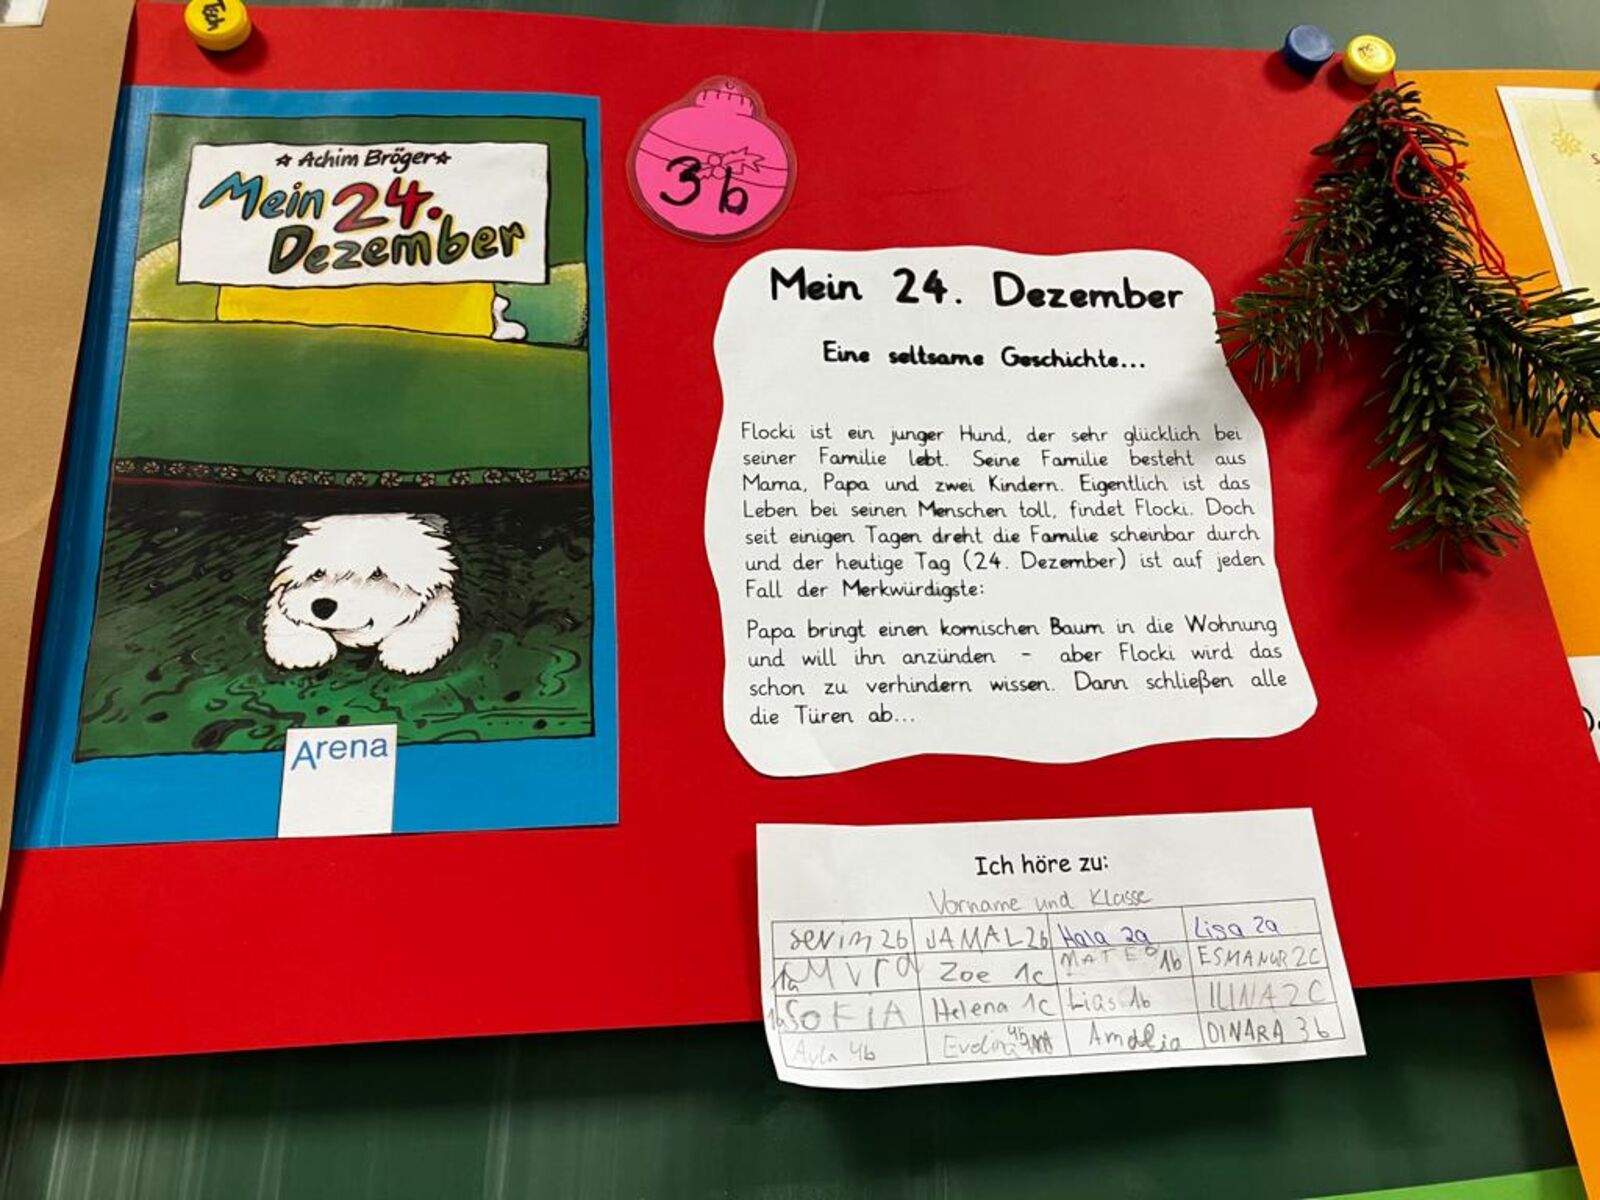 Tsch
☆ Achim Bröger ☆
Mein 24.
Dezember
Arena
3b
Mein 24. Dezember
Eine seltsame Geschichte...
Flocki ist ein junger Hund, der sehr glücklich bei
seiner Familie lebt. Seine Familie besteht aus
Mama, Papa und zwei Kindern. Eigentlich ist das
Leben bei seinen Menschen toll, findet Flocki. Doch
seit einigen Tagen dreht die Familie scheinbar durch
und der heutige Tag (24. Dezember) ist auf jeden
Fall der Merkwürdigste:
Papa bringt einen komischen Baum in die Wohnung
und will ihn anzünden - aber Flocki wird das
schon zu verhindern wissen. Dann schließen alle
die Türen ab...
Ich höre zu:
Vorname und Klasse
serin 2b JAMAL 2b Hala 2a Lisa 2a
1a Zoe 1c MATEO 1b ESMANUR 2C
SOFIA Helena 1c Lias 1b ILINA 2C
Ayla 4b Evelina 4b Amelia DINARA 3b